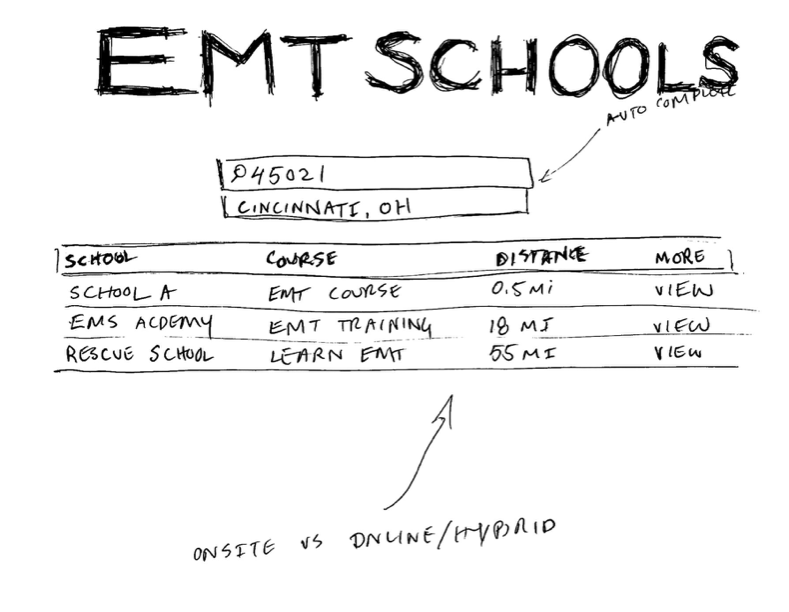 EMT SCHOOLS
AUTO COMPLETE
45021
CINCINNATI, OH
SCHOOL COURSE DISTANCE MORE
SCHOOL A EMT COURSE 0.5 Mi VIEW
EMS ACDEMY EMT TRAINING 18 MI VIEW
RESCUE SCHOOL LEARN EMT 55 MI VIEW
ONSITE VS ONLINE/HYBRID